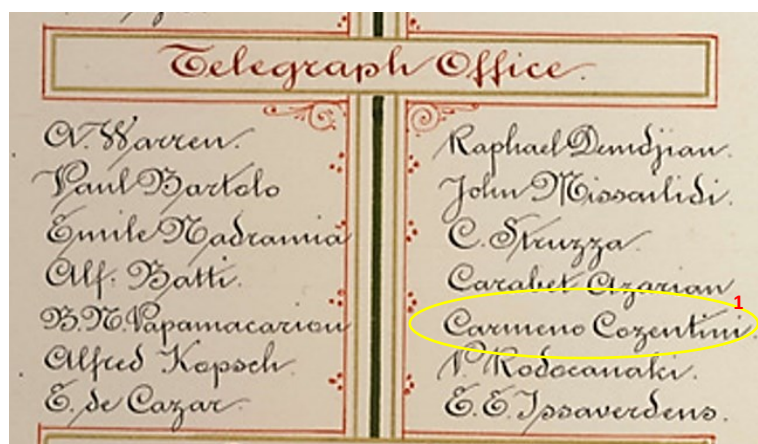 Telegraph Office.
A. Warren.
Paul Bartolo
Emile Madramia
Alf. Batti.
B. N. Papamacariou
Alfred Kopsch.
E. de Cazar.
Raphael Demdjian.
John Missailidi.
C. Struzza.
Carabet Azarian
1
Carmeno Cozentini
P. Rodocanaki.
E. E. Issaverdens.